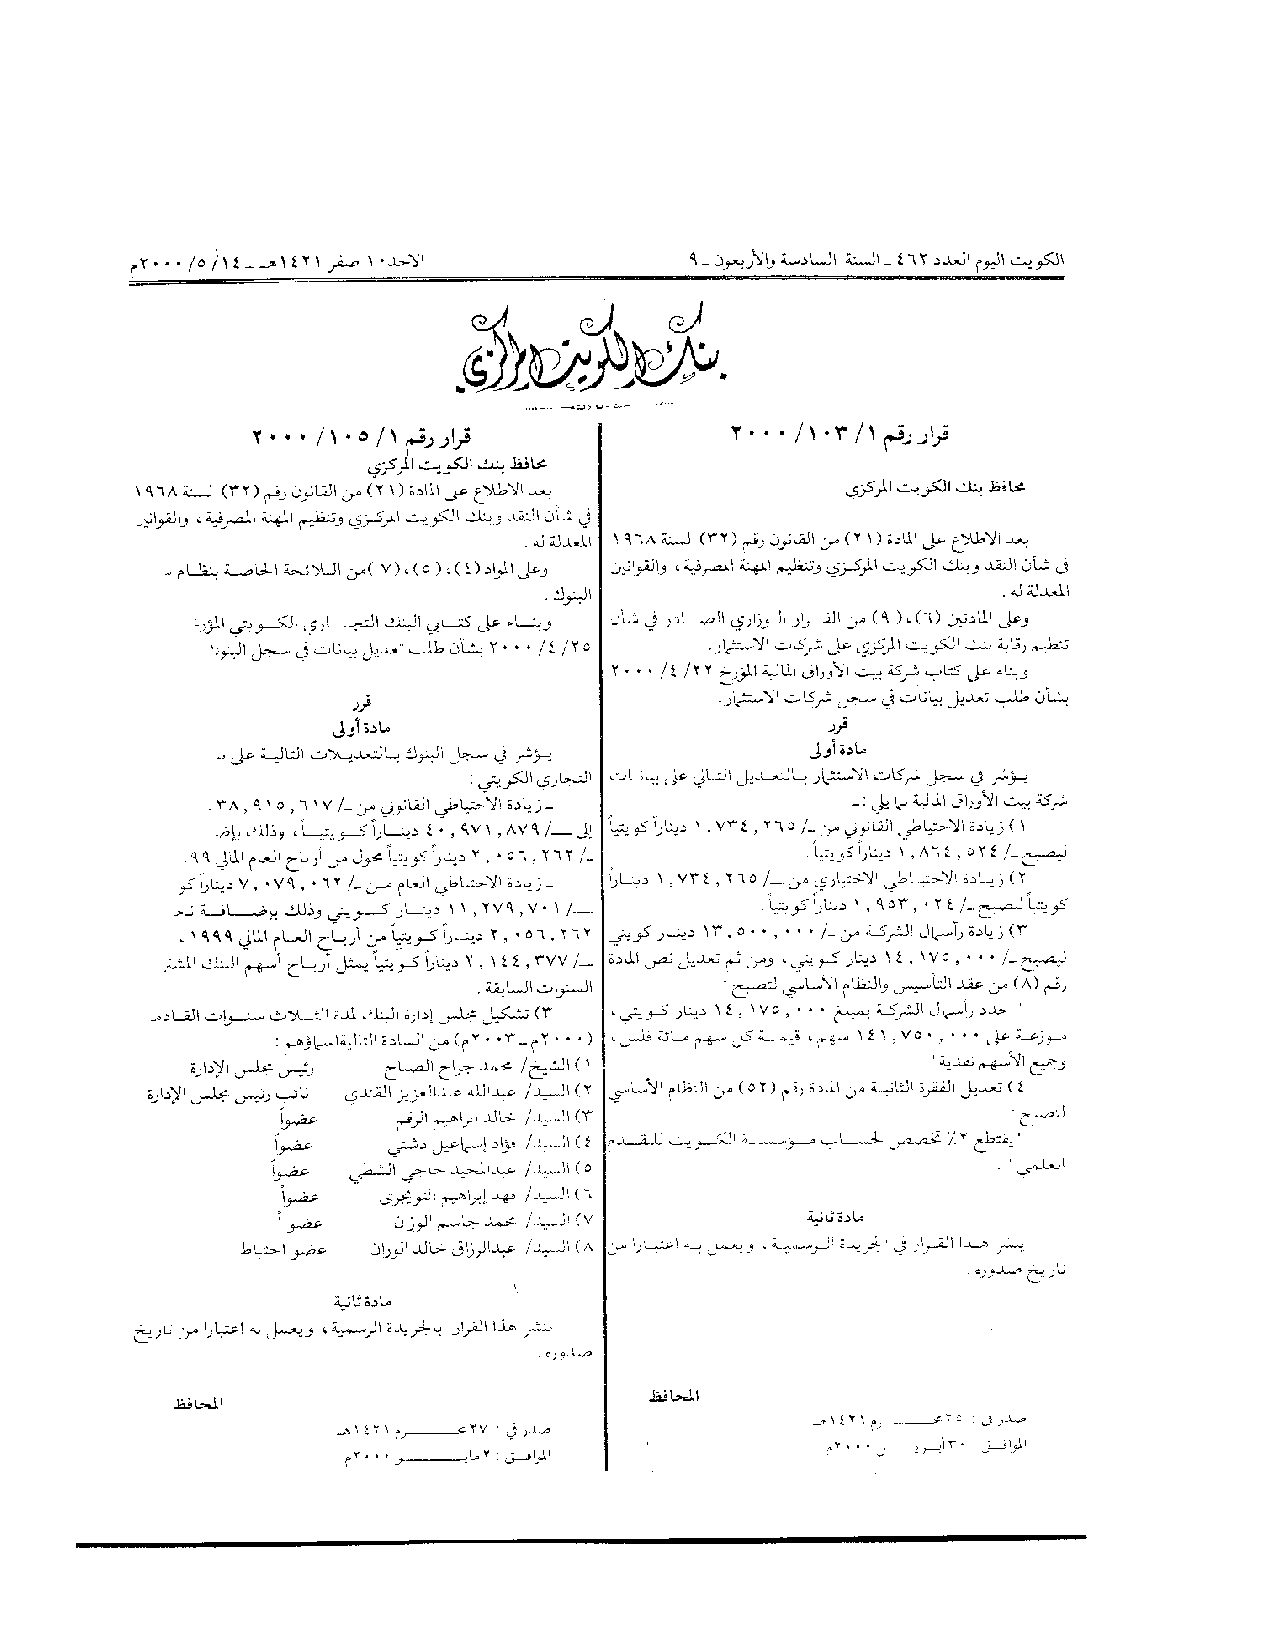 الكويت اليوم العدد ٤٦٢ - السنة السادسة والأربعون - ٩
الاحد ١٠ صفر ١٤٢١هـ - ١٤/ ٥/ ٢٠٠٠م
بنك الكويت المركزي
قرار رقم ١/ ١٠٣/ ٢٠٠٠
محافظ بنك الكويت المركزي
بعد الاطلاع على المادة (٢١) من القانون رقم (٣٢) لسنة ١٩٦٨
في شأن النقد وبنك الكويت المركزي وتنظيم المهنة المصرفية، والقوانين
المعدلة له.
وعلى المادتين (٦)، (٩) من القرار الوزاري الصادر في شأن
تنظيم رقابة بنك الكويت المركزي على شركات الاستثمار.
وبناء على كتاب شركة بيت الأوراق المالية المؤرخ ٢٢/ ٤/ ٢٠٠٠
بشأن طلب تعديل بيانات في سجل شركات الاستثمار.
قرر
مادة أولى
يؤشر في سجل شركات الاستثمار بالتعديل التالي على بيانات
شركة بيت الأوراق المالية بما يلي :-
١) زيادة الاحتياطي القانوني من -/ ٢٦٥, ٧٣٤, ١ ديناراً كويتياً
ليصبح -/ ٥٢٤, ٨٦٤, ١ ديناراً كويتياً.
٢) زيادة الاحتياطي الاختياري من -/ ٢٦٥, ٧٣٤, ١ ديناراً
كويتياً ليصبح -/ ٠٢٤, ٩٥٣, ١ ديناراً كويتياً.
٣) زيادة رأسمال الشركة من -/ ٠٠٠, ٥٠٠, ١٣ دينار كويتي
ليصبح -/ ٠٠٠, ١٧٥, ١٤ دينار كويتي، ومن ثم تعديل نص المادة
رقم (٨) من عقد التأسيس والنظام الأساسي لتصبح "
" حدد رأسمال الشركة بمبلغ ٠٠٠, ١٧٥, ١٤ دينار كويتي،
موزعة على ٠٠٠, ٧٥٠, ١٤١ سهم، قيمة كل سهم مائة فلس،
وجميع الأسهم نقدية "
٤) تعديل الفقرة الثانية من المادة رقم (٥٢) من النظام الأساسي
لتصبح "
" يقتطع ٢٪ تخصص لحساب مؤسسة الكويت للتقدم
العلمي ".
مادة ثانية
ينشر هذا القرار في الجريدة الرسمية، ويعمل به اعتبارا من
تاريخ صدوره.
المحافظ
صدر في : ٢٥ ١٤٢١هـ
الموافق ٣٠ ٢٠٠٠م
قرار رقم ١/ ١٠٥/ ٢٠٠٠
محافظ بنك الكويت المركزي
بعد الاطلاع على المادة (٢١) من القانون رقم (٣٢) لسنة ١٩٦٨
في شأن النقد وبنك الكويت المركزي وتنظيم المهنة المصرفية، والقوانين
المعدلة له.
وعلى المواد (٤)، (٥)، (٧) من اللائحة الخاصة بنظام
البنوك.
وبناء على كتابي البنك التجاري الكويتي
٢٥/ ٤/ ٢٠٠٠ بشأن طلب تعديل بيانات في سجل البنوك
قرر
مادة أولى
يؤشر في سجل البنوك بالتعديلات التالية على
التجاري الكويتي :
- زيادة الاحتياطي القانوني من -/ ٦١٧, ٩١٥, ٣٨
إلى -/ ٨٧٩, ٩٧١, ٤٠ ديناراً كويتياً، وذلك
-/ ٢٦٢, ٠٥٦, ٢ ديناراً كويتياً محول من أرباح العام المالي ٩٩.
- زيادة الاحتياطي العام من -/ ٠٦٢, ٠٧٩, ٧ ديناراً
-/ ٧٠١, ٢٧٩, ١١ دينار كويتي وذلك بإضافة
٢٦٢, ٠٥٦, ٢ ديناراً كويتياً من أرباح العام المالي ١٩٩٩،
-/ ٣٧٧, ١٤٤, ٢ ديناراً كويتياً يمثل أرباح أسهم البنك
السنوات السابقة.
٣) تشكيل مجلس إدارة البنك لمدة الثلاث سنوات
(٢٠٠٠م - ٢٠٠٣م) من السادة التالية اسماؤهم :
١) الشيخ/ محمد جراح الصباح رئيس مجلس الإدارة
٢) السيد/ عبدالله عبدالعزيز نائب رئيس مجلس الإدارة
٣) السيد/ خالد ابراهيم عضواً
٤) السيد/ فؤاد إسماعيل دشتي عضواً
٥) السيد/ عبدالمجيد حاجي الشطي عضواً
٦) السيد/ فهد إبراهيم عضواً
٧) السيد/ محمد جاسم الوزان عضو
٨) السيد/ عبدالرزاق خالد الوزان عضو احتياط
مادة ثانية
ينشر هذا القرار بالجريدة الرسمية، ويعمل به اعتبارا من تاريخ
صدوره.
المحافظ
صدر في : ٢٧ ١٤٢١هـ
الموافق : ٢ مايو ٢٠٠٠م